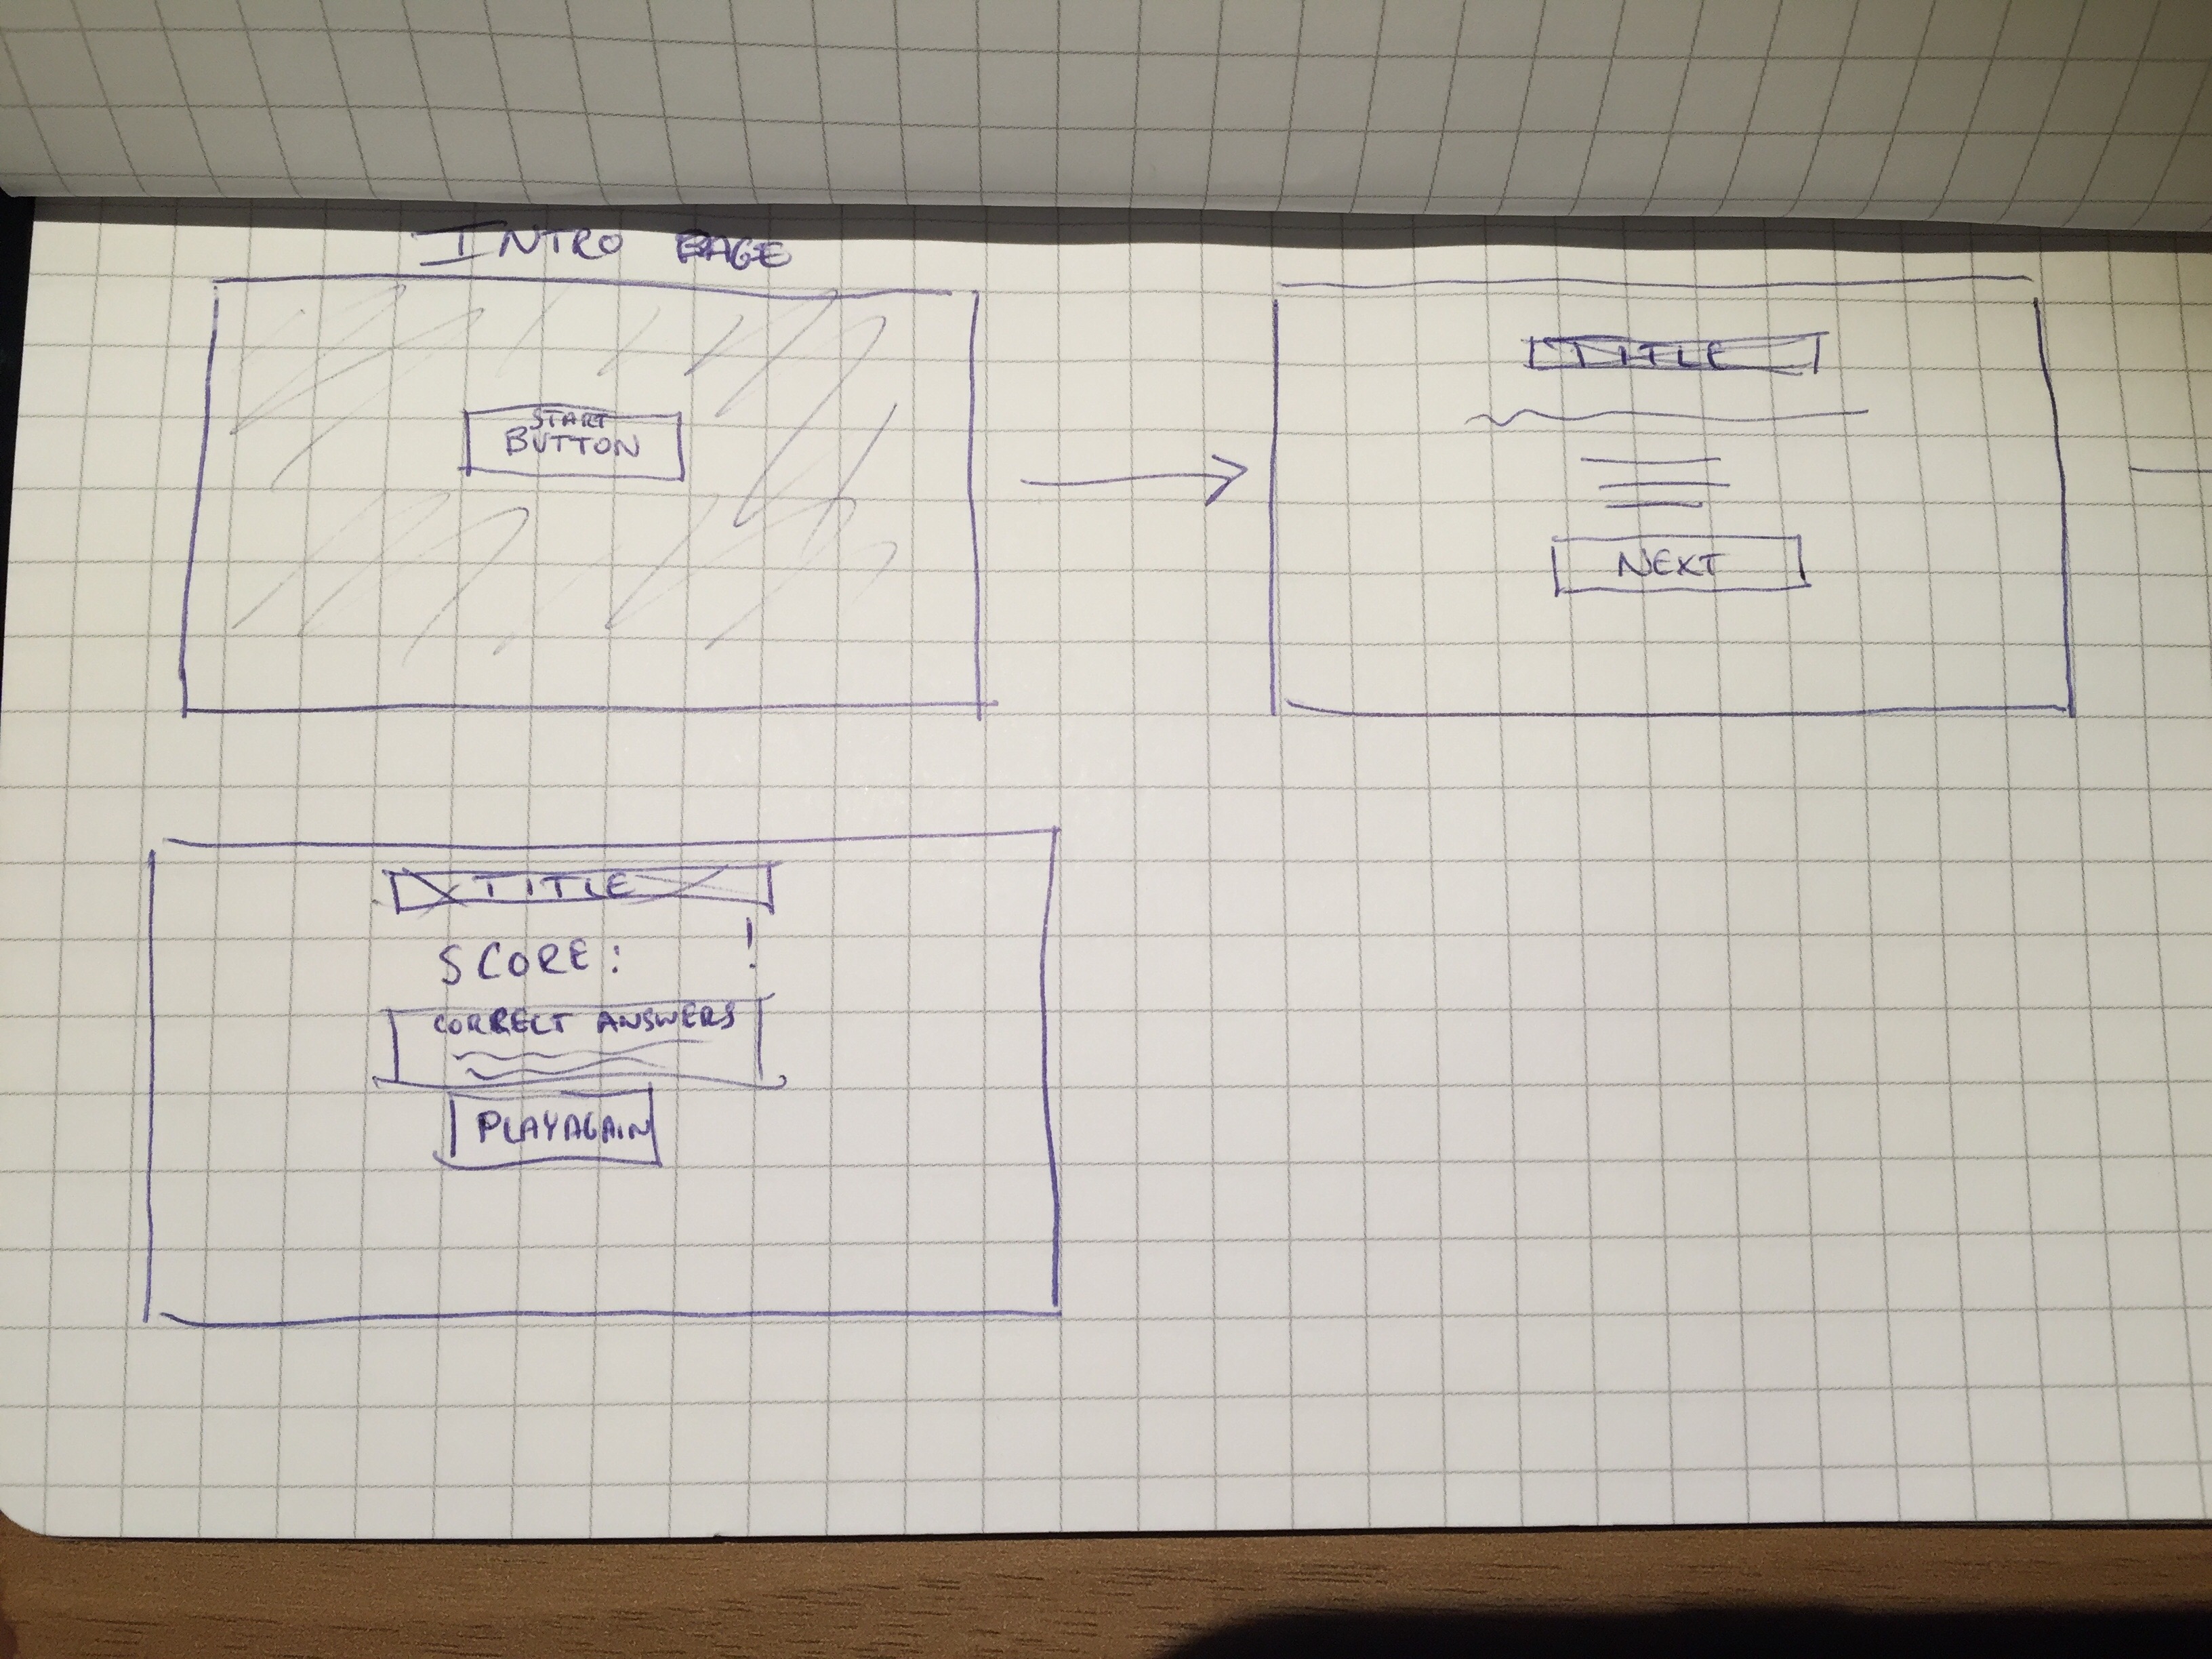 INTRO PAGE
START
BUTTON
TITLE
NEXT
TITLE
SCORE: !
CORRECT ANSWERS
PLAY AGAIN